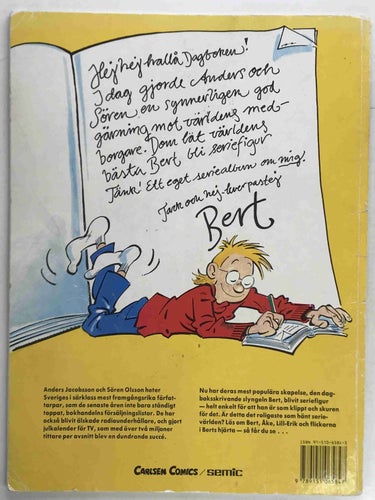 Hej hej hallå Dagboken!
I dag gjorde Anders och
Sören en synnerligen god
gärning mot världens med-
borgare. Dom lät världens
bästa Bert bli seriefigur
Tänk! Ett eget seriealbum om mig.
Tack och hej leverpastej
Bert
Anders Jacobsson och Sören Olsson heter
Sveriges i särklass mest framgångsrika förfat-
tarpar, som de senaste åren inte bara ständigt
toppat, bokhandelns försäljningslistor. De har
också blivit älskade radiounderhållare, och gjort
julkalender för TV, som med över två miljoner
tittare per avsnitt blev en dundrande succé.
Nu har deras mest populära skapelse, den dag-
boksskrivande slyngeln Bert, blivit seriefigur
— helt enkelt för att han är som klippt och skuren
för det. Är detta det roligaste som hänt serie-
världen? Läs om Bert, Åke, Lill-Erik och flickorna
i Berts hjärta — så får du se . . .
CARLSEN COMICS/SEMIC